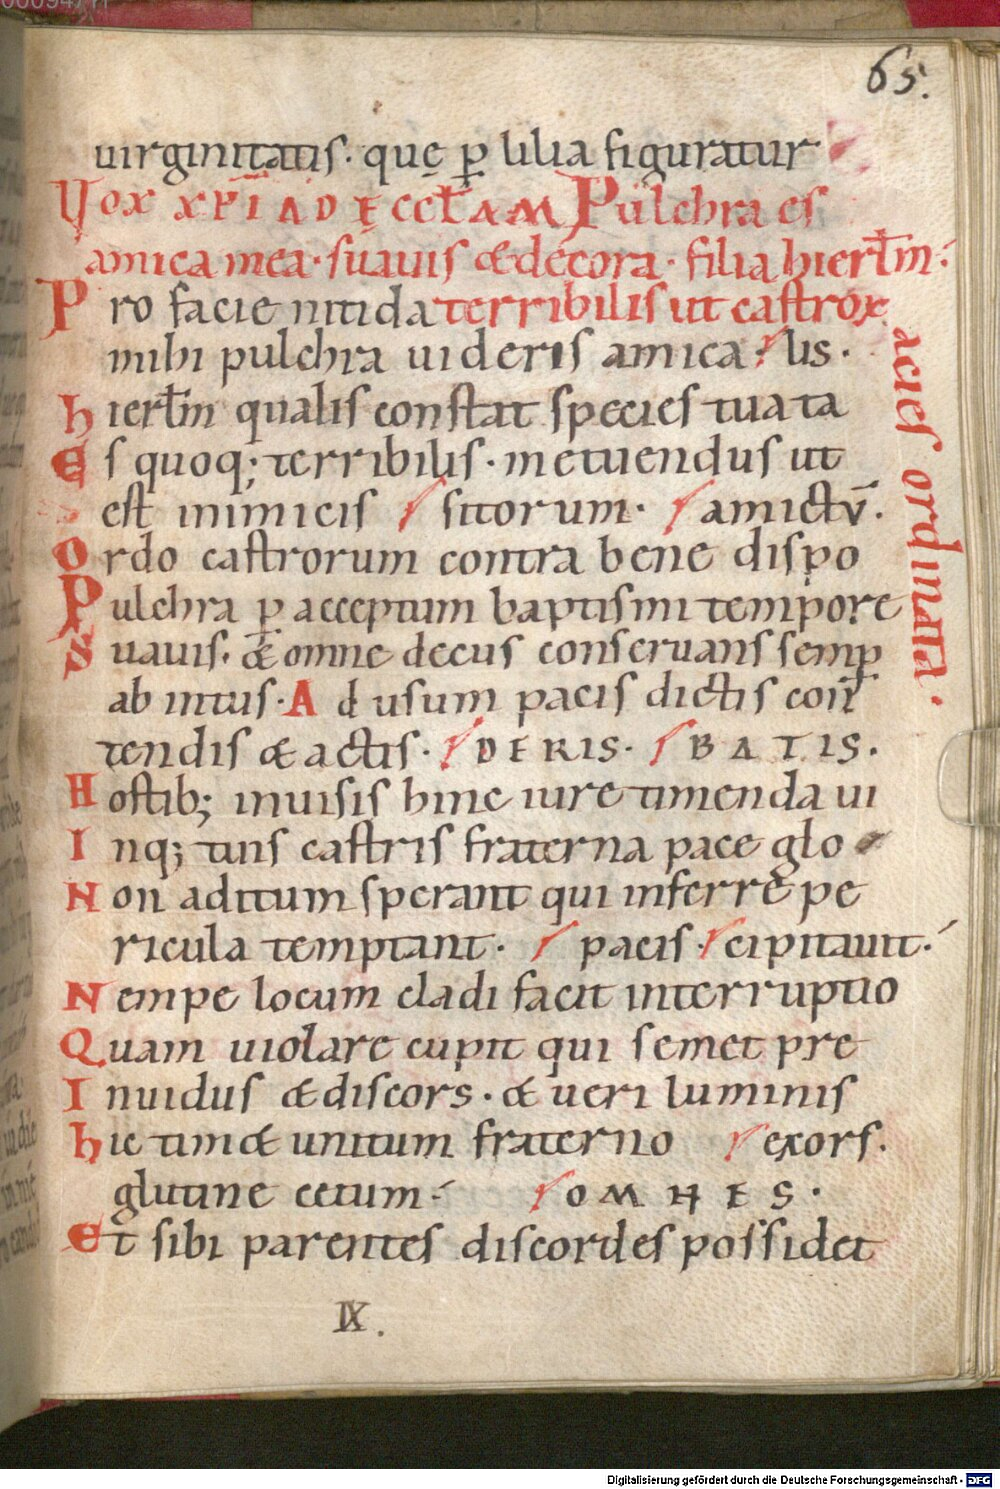 65.
uirginitatis. quę ꝑ lilia figuratur
Vox xp̄i adęccl̄am Pulchra es
amica mea. suauis &decora. filia hierl̄m.
Pro facie nitida terribilis ut castroꝝ
acies ordinata.
mihi pulchra uideris amica. lis.
hierl̄m qualis constat species tua ta
Es quoq; terribilis. metuendus ut
est inimicis sitorum. amictū.
Ordo castrorum contra bene dispo
Pulchra ꝑ acceptum baptismi tempore
Suauis. & omne decus conseruans semꝑ
ab intus. Ad usum pacis dictis con
tendis & actis. DERIS. BATIS.
Hostib; inuisis hinc iure timenda ui
Inq; tuis castris fraterna pace glo
Non aditum sperant qui inferre pe
ricula temptant. pacis. cipitauit.
Nempe locum cladi facit interruptio
Quam uiolare cupit qui semet pre
Inuidus & discors. & ueri luminis
hic tim& unitum fraterno exors.
glutine cetum. OMNES.
Et sibi parentes discordes possidet
IX.
Digitalisierung gefördert durch die Deutsche Forschungsgemeinschaft - DFG